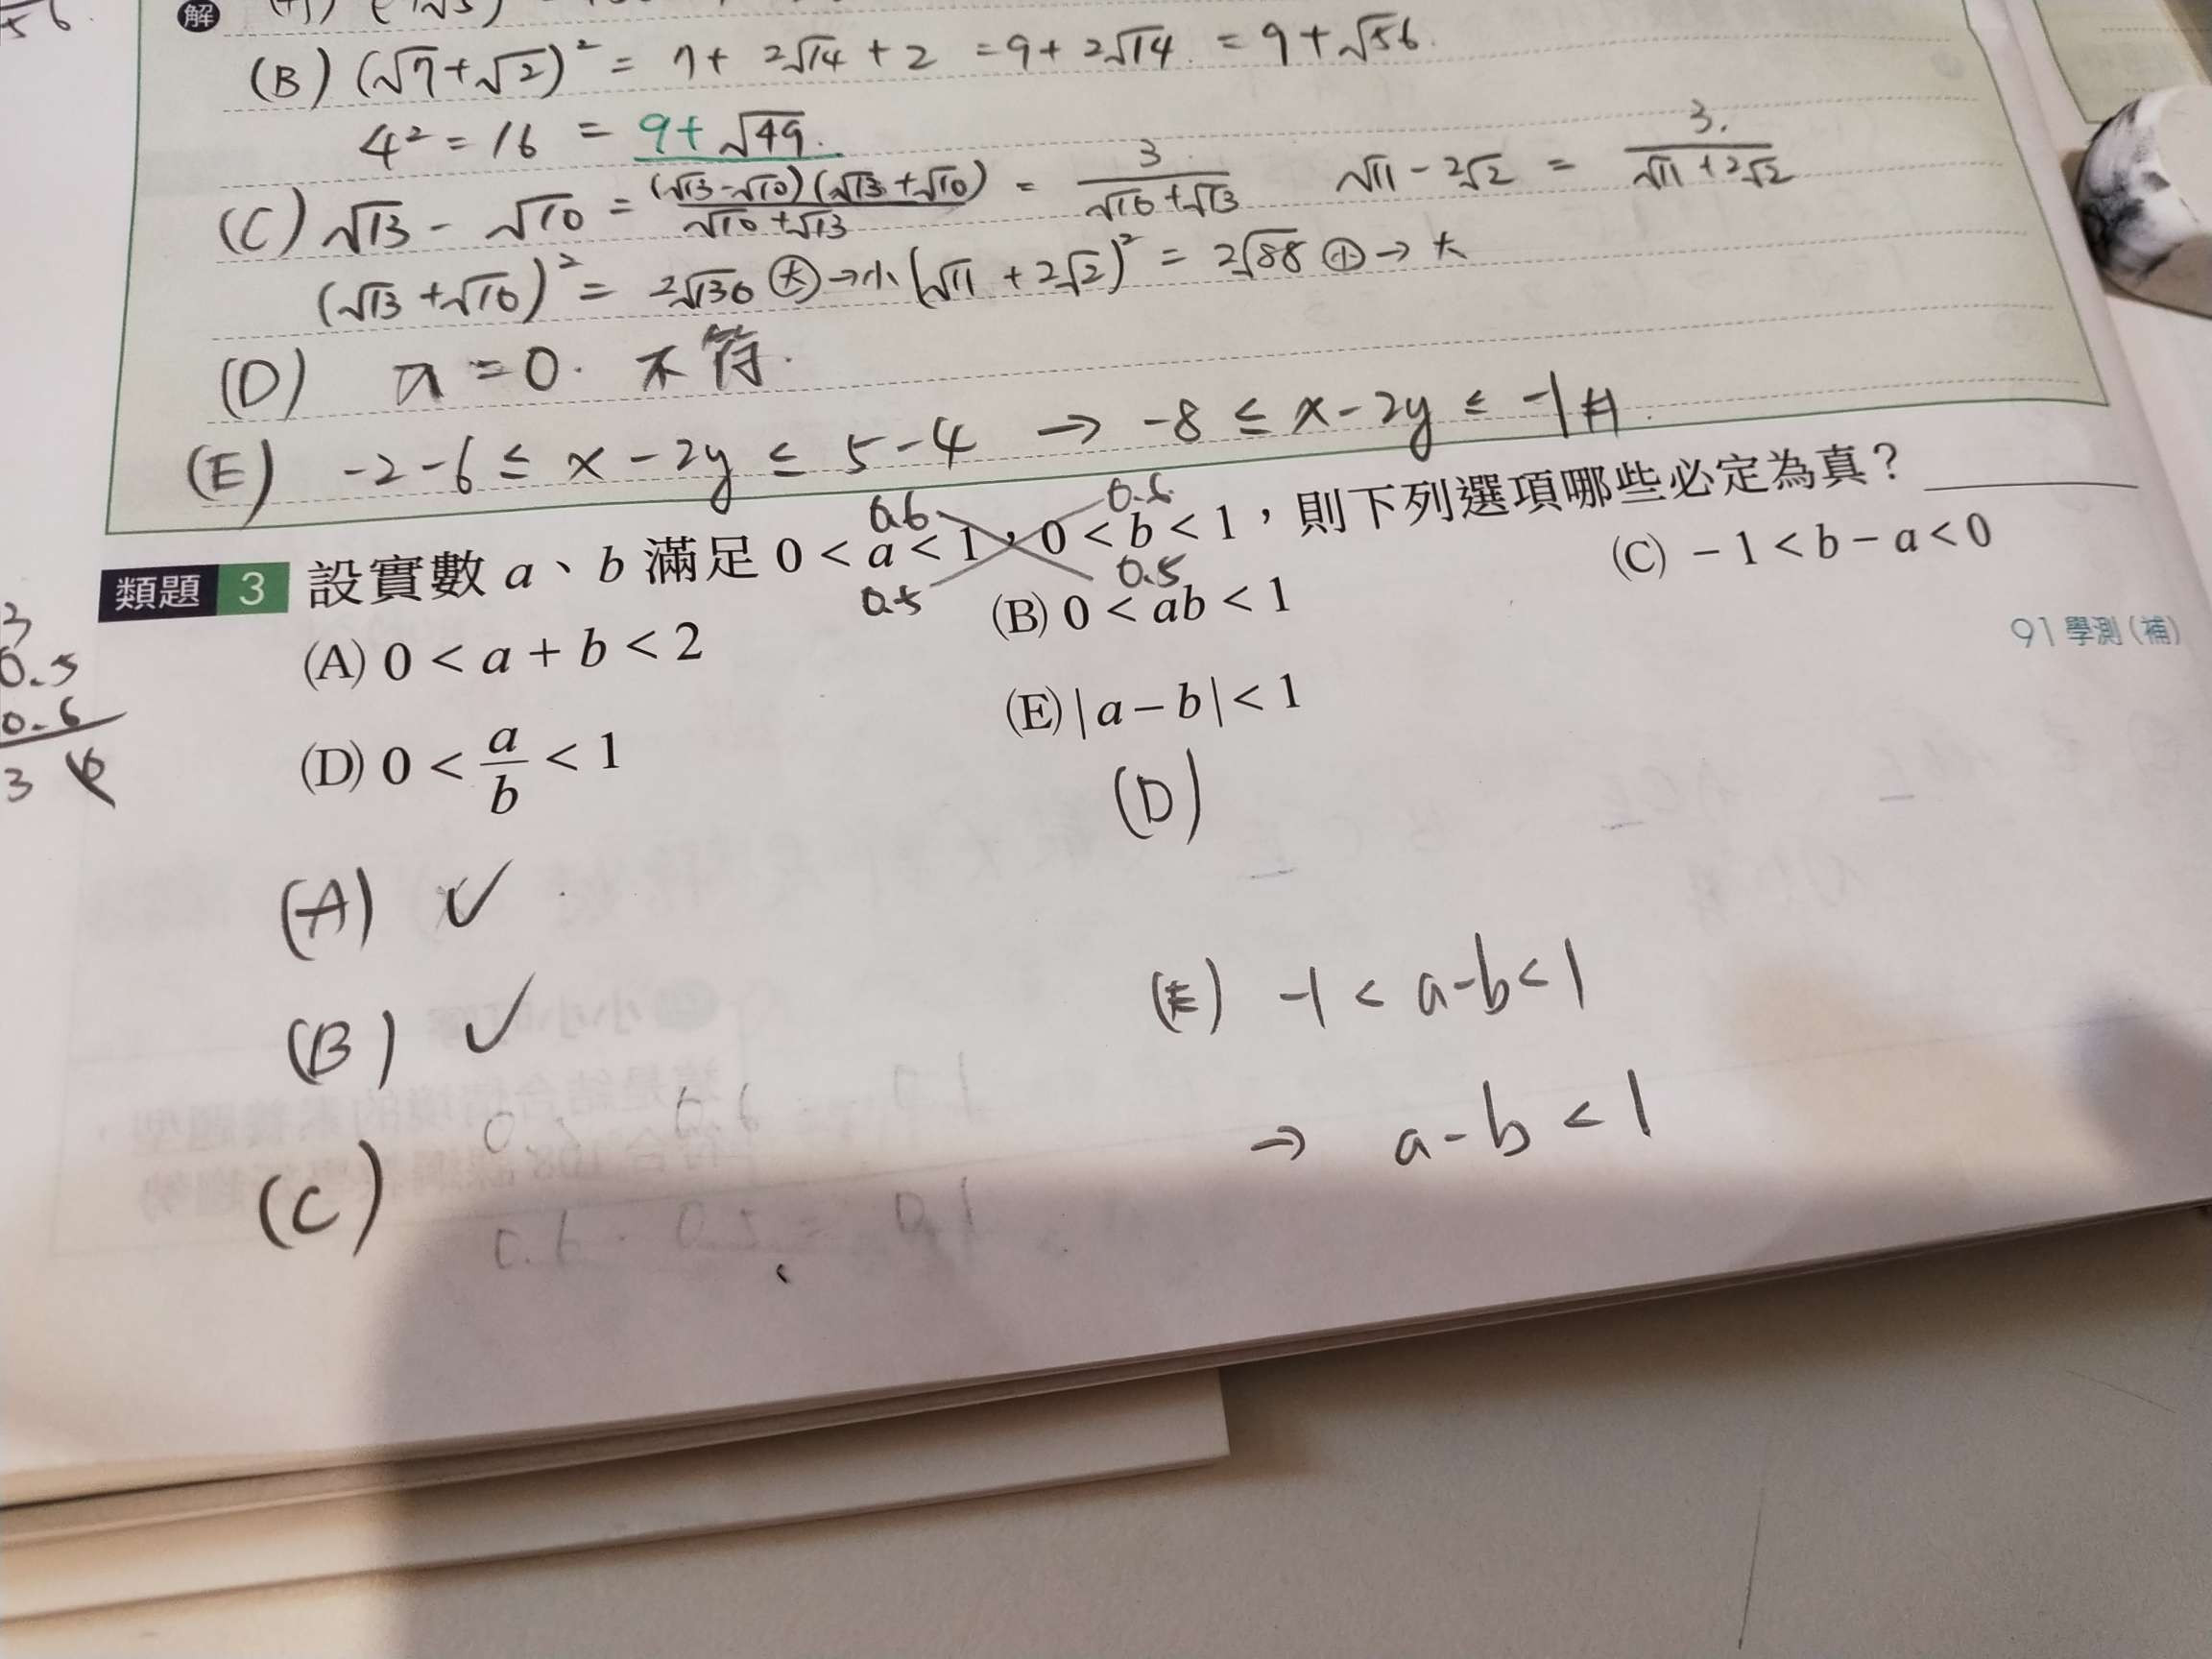 56
解
(B) (√7+√2)² = 7+ 2√14 + 2 = 9+ 2√14. = 9+√56.
4² = 16 = 9+ √49.
(C) √13 - √10 = (√13-√10)(√13+√10) / √10+√13 = 3 / √10+√13 √11 - 2√2 = 3. / √11+2√2
(√13+√10)² = 2√130 大→小 (√11 + 2√2)² = 2√88 小→大
(D) x = 0. 不符.
(E) -2-6 ≤ x-2y ≤ 5-4 → -8 ≤ x-2y ≤ -1 #.
0.6 0.6
類題 3 設實數 a、b 滿足 0 < a < 1，0 < b < 1，則下列選項哪些必定為真？
0.5 0.5
(A) 0 < a + b < 2 (B) 0 < ab < 1 (C) －1 < b－a < 0
91 學測（補）
(D) 0 < a/b < 1 (E) | a－b | < 1
3
0.5
0.6
3
(D)
(A) ✓
(B) ✓
(C)
(E) -1 < a-b < 1
→ a-b < 1